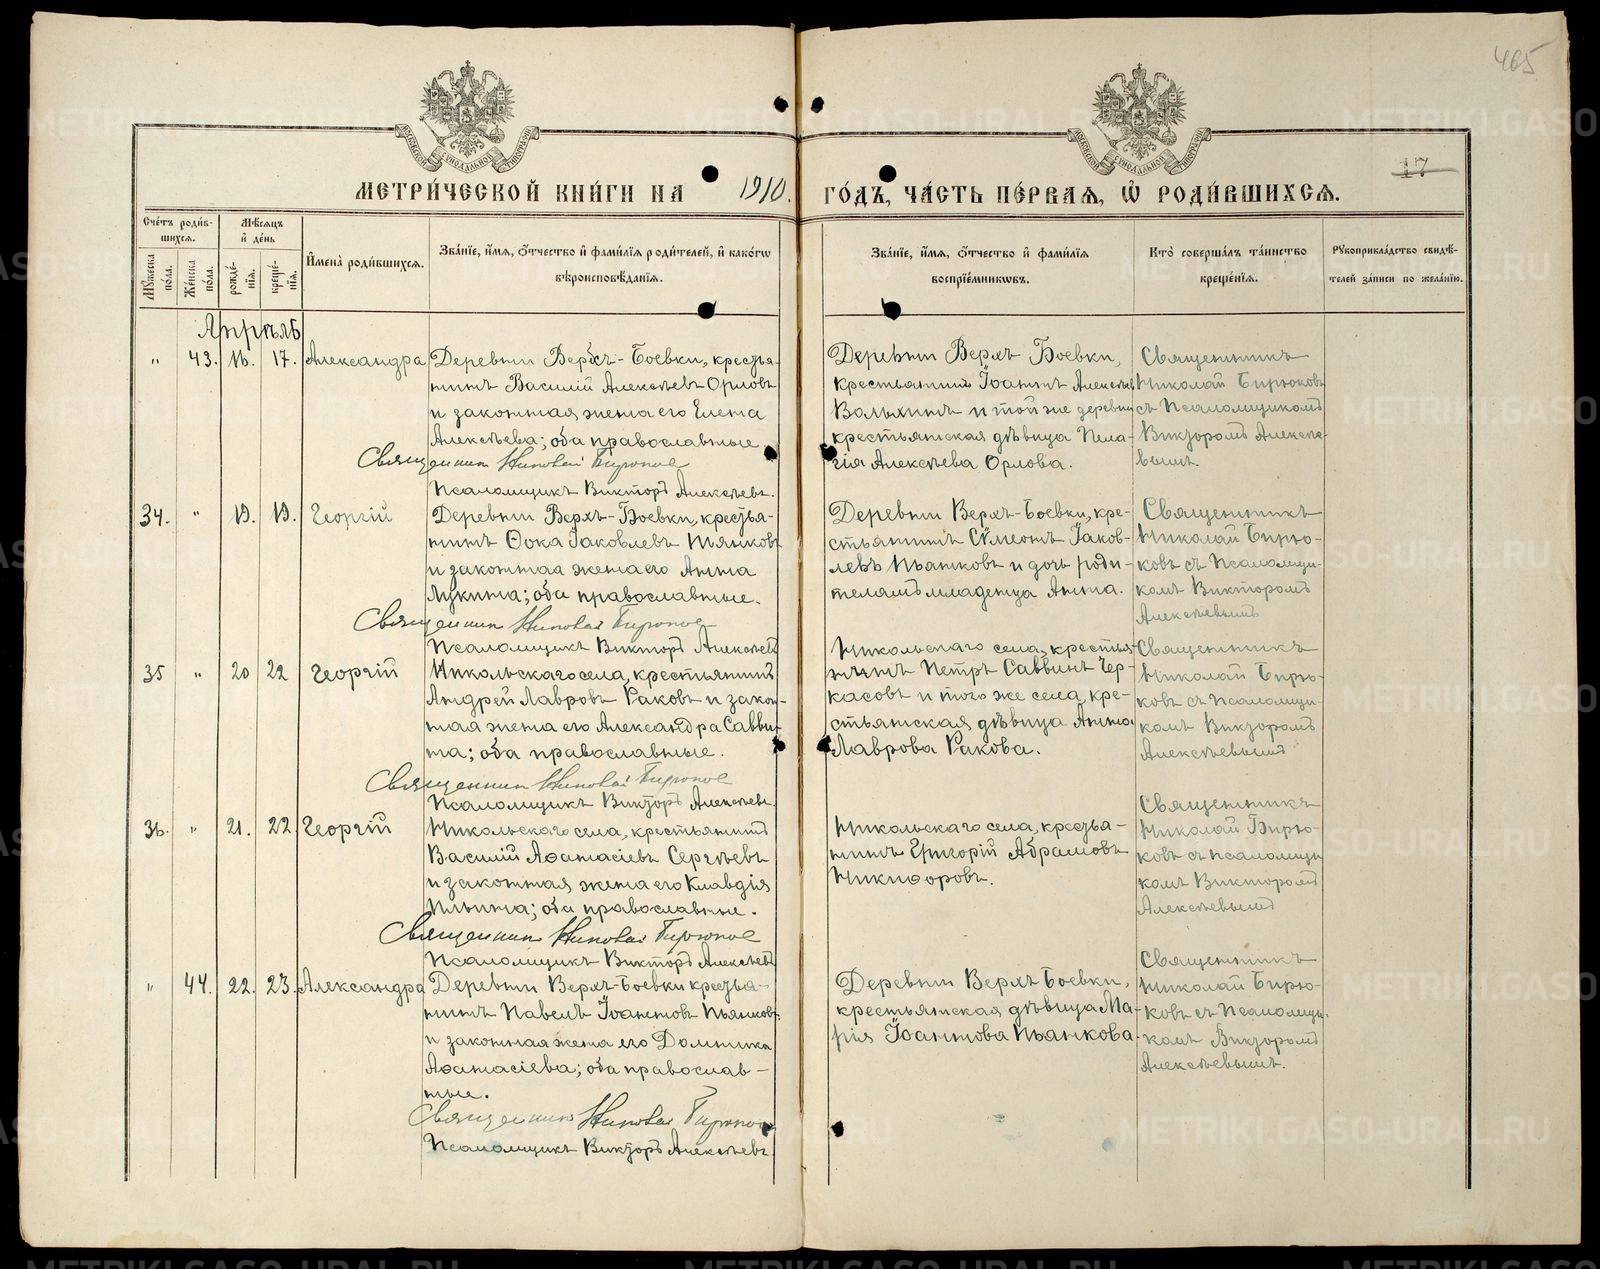 465
17
МОСКОВСКОЙ СѴНОДАЛЬНОЙ ТИПОГРАФІИ
МОСКОВСКОЙ СѴНОДАЛЬНОЙ ТИПОГРАФІИ
МЕТРИ́ЧЕСКОЙ КНИ́ГИ НА 1910. ГО́ДЪ, ЧА́СТЬ ПЕ́РВАЯ, Ѽ РОДИ́ВШИХСЯ.
Сче́тъ роди́в-
шихся.
Мꙋ́жеска по́ла.
Же́нска по́ла.
Мѣ́сяцъ и де́нь
рожде́-
нїя.
креще́-
нїя.
И҆мена̀ роди́вшихся.
Зва́нїе, и҆́мя, ѻ҆́тчество и҆ фами́лїя роди́телей, и҆ како́гѡ
вѣ̀роисповѣ́данїя.
Зва́нїе, и҆́мя, ѻ҆́тчество и҆ фами́лїя
воспрїе́мникѡвъ.
Кто̀ соверша́лъ та́инство
креще́нїя.
Рꙋкоприкла́дство свидѣ́-
телей за́писи по жела́нїю.
Апрѣль
" 43. 16. 17. Александра
Деревни Верхъ-Боевки, крестья-
нинъ Василій Алексѣевъ Орловъ
и законная жена его Елена
Алексѣева; оба православные
Священникъ Николай Бирюковъ
Псаломщикъ Викторъ Алексѣевъ.
Деревни Верхъ Боевки,
крестьянинъ Іоаннъ Алексѣевъ
Вальхинъ и той же деревни
крестьянская дѣвица Пела-
гія Алексѣева Орлова.
Священникъ
Николай Бирюковъ
съ Псаломщикомъ
Викторомъ Алексѣе-
вымъ.
34. " 19. 19. Георгій
Деревни Верхъ-Боевки, крестья-
нинъ Ѳока Іаковлевъ Пьянковъ
и законная жена его Анна
Лукина; оба православные.
Священникъ Николай Бирюковъ
Псаломщикъ Викторъ Алексѣевъ
Деревни Верхъ-Боевки, кре-
стьянинъ Сѵмеонъ Іаков-
левъ Пьянковъ и дочь роди-
телямъ младенца Анна.
Священникъ
Николай Бирю-
ковъ съ Псаломщи-
комъ Викторомъ
Алексѣевымъ
35 " 20 22 Георгій
Никольскаго села, крестьянинъ
Андрей Лавровъ Раковъ и закон-
ная жена его Александра Савви-
на; оба православные.
Священникъ Николай Бирюковъ
Псаломщикъ Викторъ Алексѣевъ.
Никольскаго села, крестья-
нинъ Петръ Саввинъ Чер-
касовъ и того же села, кре-
стьянская дѣвица Анна
Лаврова Ракова.
Священникъ
Николай Бирю-
ковъ съ Псаломщи-
комъ Викторомъ
Алексѣевымъ
36. " 21. 22. Георгій
Никольскаго села, крестьянинъ
Василій Аѳанасіевъ Сергѣевъ
и законная жена его Клавдія
Ильина; оба православные.
Священникъ Николай Бирюковъ
Псаломщикъ Викторъ Алексѣевъ
Никольскаго села, крестья-
нинъ Григорій Абрамовъ
Никифоровъ.
Священникъ
Николай Бирю-
ковъ съ псаломщи-
комъ Викторомъ
Алексѣевымъ
" 44. 22. 23. Александра
Деревни Верхъ-Боевки крестья-
нинъ Павелъ Іоанновъ Пьянковъ
и законная жена его Домника
Аѳанасіева; оба православ-
ные.
Священникъ Николай Бирюковъ
Псаломщикъ Викторъ Алексѣевъ.
Деревни Верхъ Боевки,
крестьянская дѣвица Ма-
рія Іоаннова Пьянкова.
Священникъ
Николай Бирю-
ковъ съ Псаломщи-
комъ Викторомъ
Алексѣевымъ.
METRIKI.GASO-URAL.RU